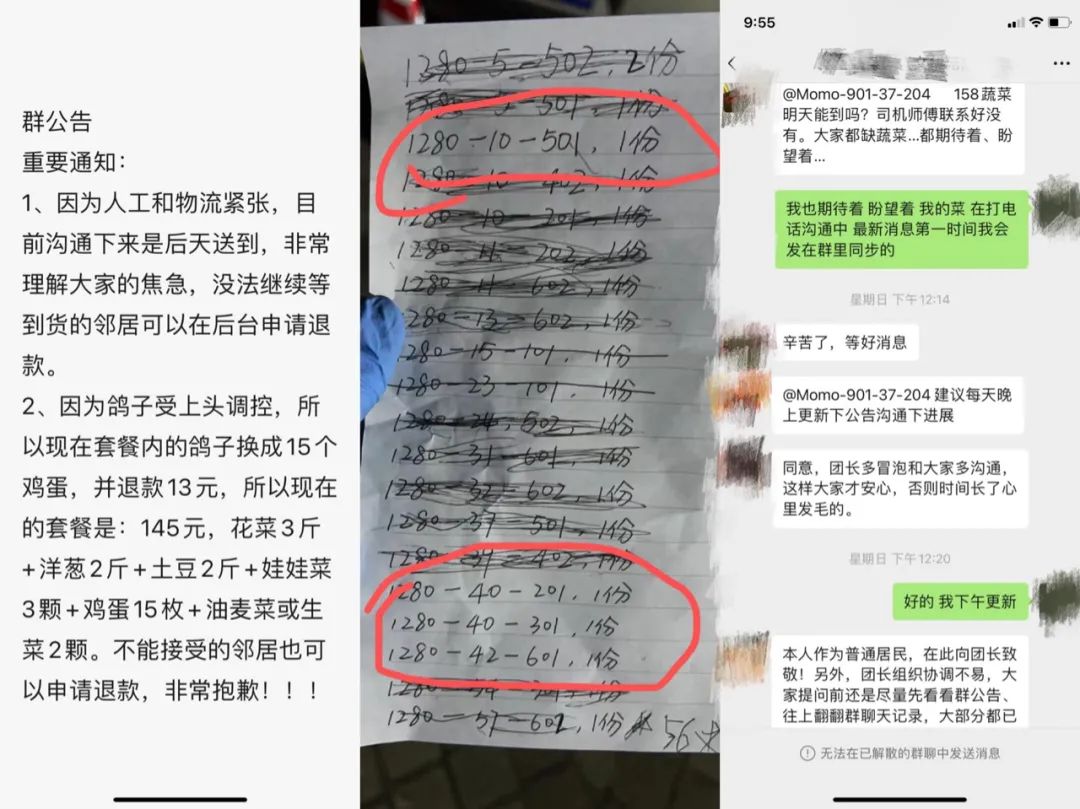 群公告
重要通知：
1、因为人工和物流紧张，目
前沟通下来是后天送到，非常
理解大家的焦急，没法继续等
到货的邻居可以在后台申请退
款。
2、因为鸽子受上头调控，所
以现在套餐内的鸽子换成15个
鸡蛋，并退款13元，所以现在
的套餐是：145元，花菜3斤
+洋葱2斤+土豆2斤+娃娃菜
3颗+鸡蛋15枚+油麦菜或生
菜2颗。不能接受的邻居也可
以申请退款，非常抱歉！！！
1280-5-502，2份
501，1份
1280-10-501，1份
1280-10-402，1份
1280-10-201，1份
1280-11-202，1份
1280-11-602，1份
1280-13-602，1份
1280-15-101，1份
1280-23-101，1份
502，1份
1280-31-601，1份
1280-32-602，1份
1280-37-501，1份
402，1份
1280-40-201，1份
1280-40-301，1份
1280-42-601，1份
1280-57-602，1份
9:55
@Momo-901-37-204 158蔬菜
明天能到吗？司机师傅联系好没
有。大家都缺蔬菜...都期待着、盼
望着...
我也期待着 盼望着 我的菜 在打电
话沟通中 最新消息第一时间我会
发在群里同步的
星期日 下午12:14
辛苦了，等好消息
@Momo-901-37-204 建议每天晚
上更新下公告沟通下进展
同意，团长多冒泡和大家多沟通，
这样大家才安心，否则时间长了心
里发毛的。
星期日 下午12:20
好的 我下午更新
本人作为普通居民，在此向团长致
敬！另外，团长组织协调不易，大
家提问前还是尽量先看看群公告、
往上翻翻群聊天记录，大部分都已
无法在已解散的群聊中发送消息